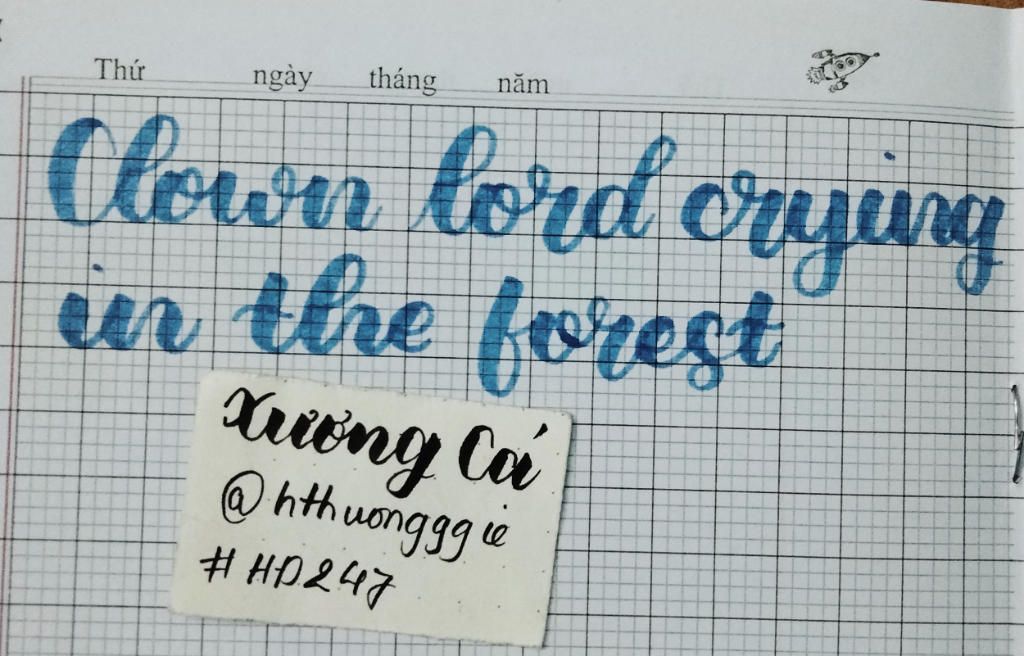 Thứ ngày tháng năm
Clown lord crying
in the forest
Xương Cá
@hthuongggie
#HD247